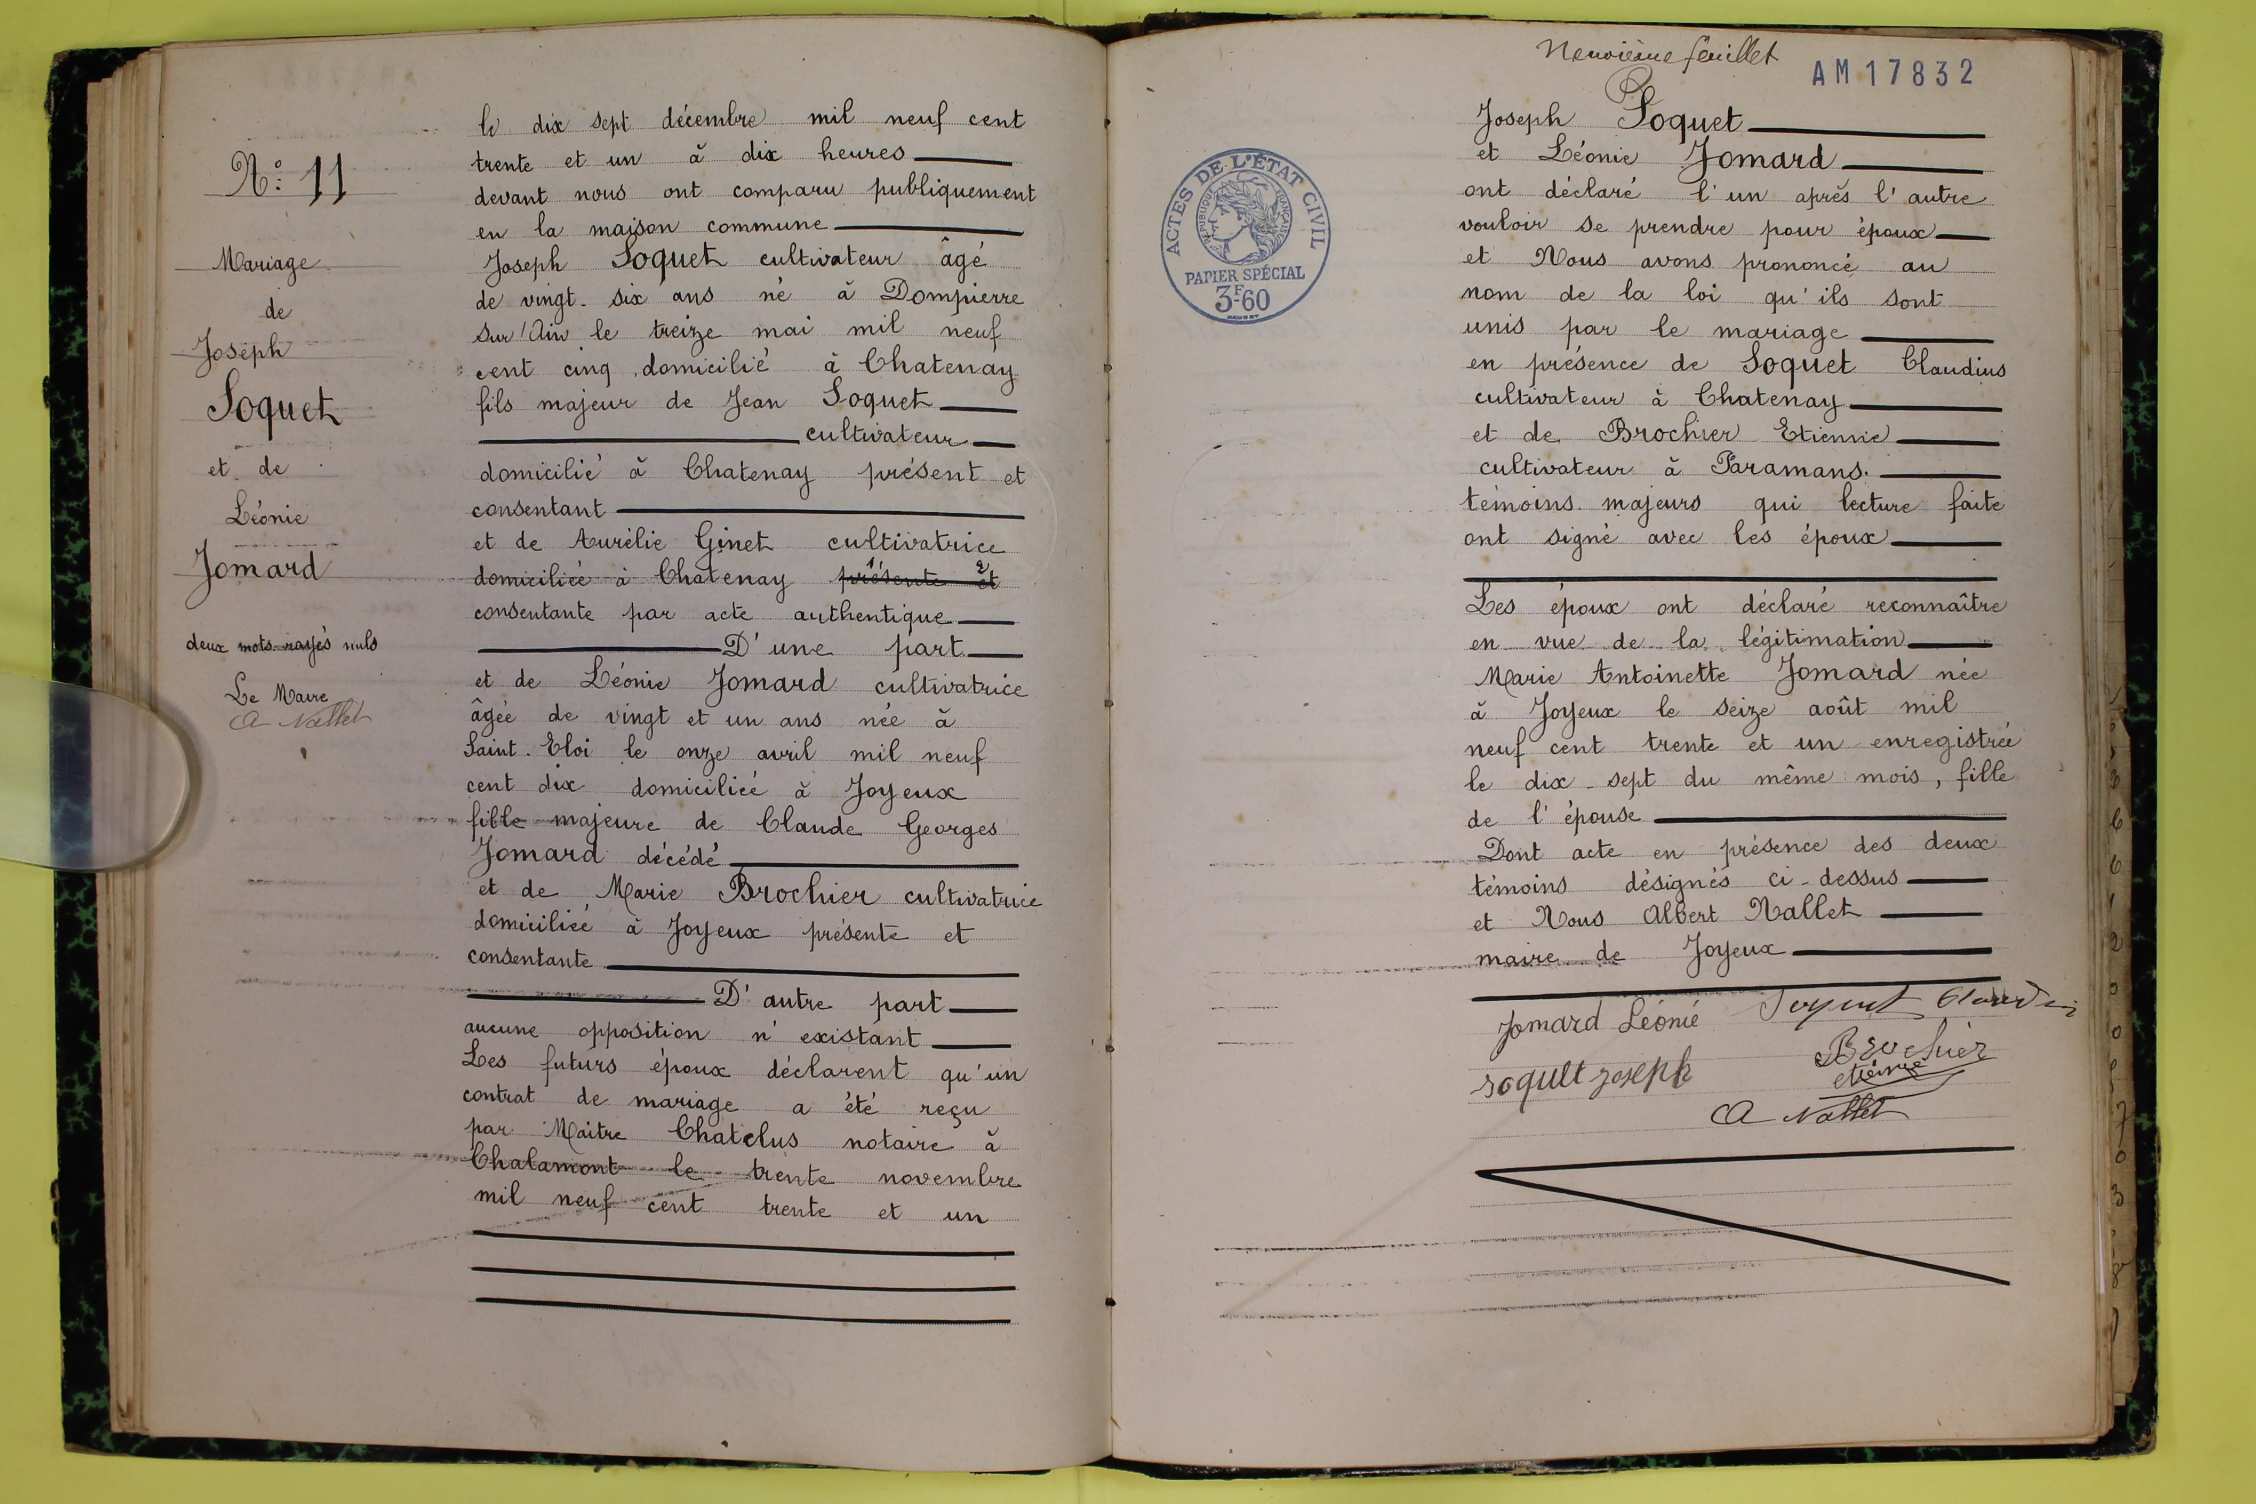 N°: 11
Mariage
de
Joseph
Soquet
et de
Léonie
Jomard
deux mots rayés nuls
Le Maire
A Nallet
le dix sept décembre mil neuf cent
trente et un à dix heures
devant nous ont comparu publiquement
en la maison commune
Joseph Soquet cultivateur âgé
de vingt-six ans né à Dompierre
sur Ain le treize mai mil neuf
cent cinq domicilié à Chatenay
fils majeur de Jean Soquet
cultivateur
domicilié à Chatenay présent et
consentant
et de Aurélie Ginet cultivatrice
domiciliée à Chatenay présente et
1 2
consentante par acte authentique
D'une part
et de Léonie Jomard cultivatrice
âgée de vingt et un ans née à
Saint-Eloi le onze avril mil neuf
cent dix domiciliée à Joyeux
fille majeure de Claude Georges
Jomard décédé
et de Marie Brochier cultivatrice
domiciliée à Joyeux présente et
consentante
D'autre part
aucune opposition n'existant
Les futurs époux déclarent qu'un
contrat de mariage a été reçu
par Maître Chatelus notaire à
Chalamont le trente novembre
mil neuf cent trente et un
Neuvième feuillet
AM17832
ACTES DE L'ÉTAT CIVIL
RÉPUBLIQUE FRANÇAISE
PAPIER SPÉCIAL
3F-60
Joseph Soquet
et Léonie Jomard
ont déclaré l'un après l'autre
vouloir se prendre pour époux
et Nous avons prononcé au
nom de la loi qu'ils sont
unis par le mariage
en présence de Soquet Claudius
cultivateur à Chatenay
et de Brochier Etienne
cultivateur à Faramans.
témoins majeurs qui lecture faite
ont signé avec les époux
Les époux ont déclaré reconnaître
en vue de la légitimation
Marie Antoinette Jomard née
à Joyeux le seize août mil
neuf cent trente et un enregistrée
le dix-sept du même mois, fille
de l'épouse
Dont acte en présence des deux
témoins désignés ci-dessus
et Nous Albert Nallet
maire de Joyeux
Jomard Léonie
soquet joseph
Brochier
etienne
A Nallet